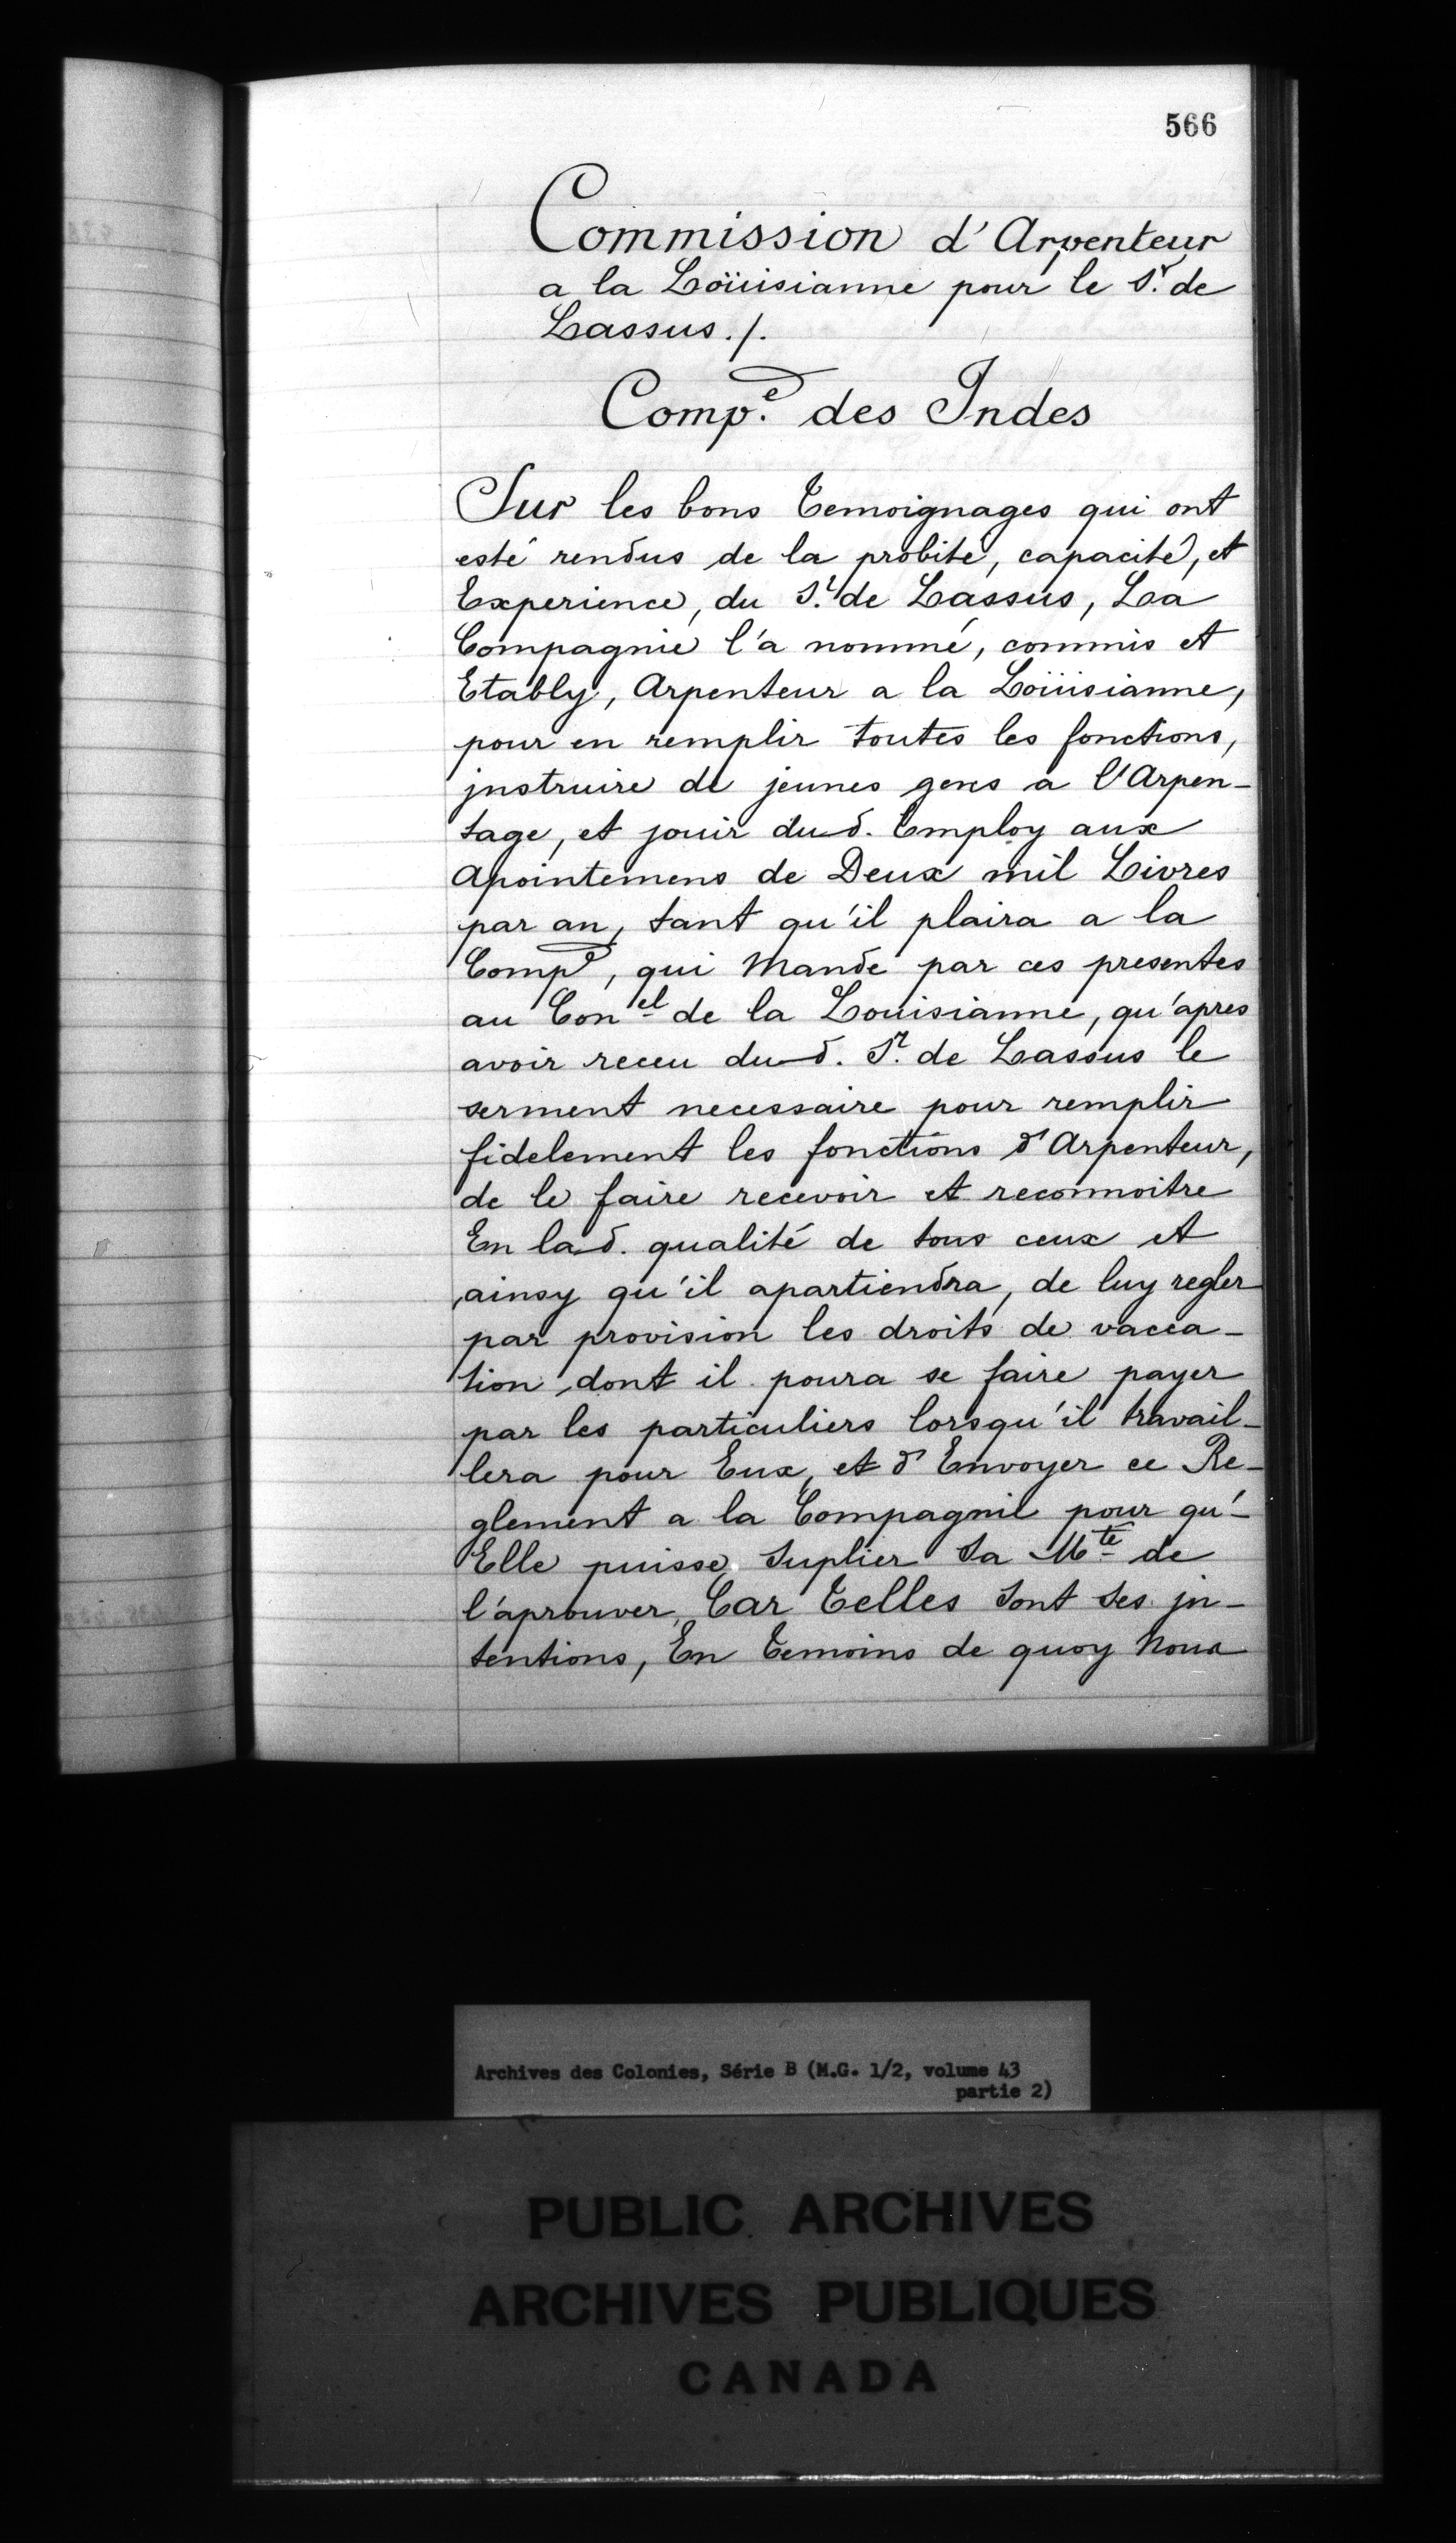 566
Commission d'Arpenteur
a la Loüisianne pour le S.r de
Lassus./.
Comp.e des Indes
Sur les bons temoignages qui ont
esté rendus de la probité, capacité, et
Experience, du S.r de Lassus, La
Compagnie l'a nommé, commis et
Etably, Arpenteur a la Loüisianne,
pour en remplir toutes les fonctions,
jnstruire de jeunes gens a l'Arpen-
tage, et jouir dud. Employ aux
Apointemens de Deux mil Livres
par an, tant qu'il plaira a la
Compe, qui Mande par ces presentes
au Conel de la Louisianne, qu'apres
avoir receu dud. S.r de Lassus le
serment necessaire pour remplir
fidelement les fonctions d'Arpenteur,
de le faire recevoir et reconnoitre
En lad. qualité de tous ceux et
ainsy qu'il apartiendra, de luy regler
par provision les droits de vacca-
tion dont il poura se faire payer
par les particuliers lorsqu'il travail-
lera pour Eux, et d'Envoyer ce Re-
glement a la Compagnie pour qu'-
Elle puisse Suplier Sa Mte de
l'aprouver, Car telles sont ses jn-
tentions, En temoins de quoy Nous
Archives des Colonies, Série B (M.G. 1/2, volume 43
partie 2)
PUBLIC ARCHIVES
ARCHIVES PUBLIQUES
CANADA